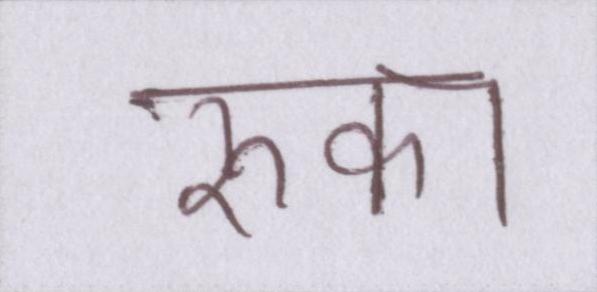 रुका